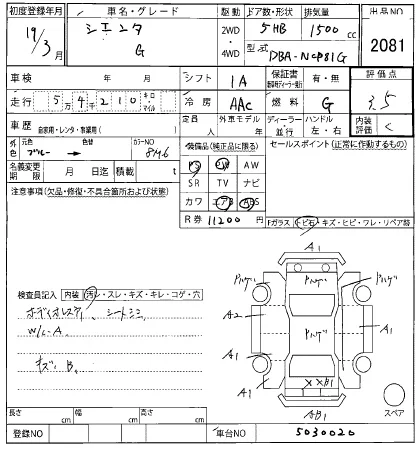 初度登録年月 車名・グレード 駆動 ドア数・形状 排気量 出品NO
19/3月 シエンタ G 2WD 4WD 5HB 1500cc 2081
型式 DBA-NCP81G
車検 年 月 シフト IA 保証書 有・無 評価点
走行 5万4千210 キロ・マイル 冷房 AAC 燃料 G 3.5
車歴 自家用・レンタ・事業用( ) 定員 人 外車モデル 年 ディーラー・並行 ハンドル 左・右 内装評価 C
色 元色 ブルー → 色替 カラーNO 8M6
装備品(純正品に限る) セールスポイント(正常に作動するもの)
PS PW AW
名義変更期限 月 日迄 積載 t
SR TV ナビ
注意事項(欠品・修復・不具合箇所および状態)
カワ エアB ABS
R券 11200円
Fガラス トビ石・キズ・ヒビ・ワレ・リペア跡
A1
検査員記入 内装 汚レ・スレ・キズ・キレ・コゲ・穴
シートシミ
W/L-A
キズ, B
A2 A1
A1 A1
XXB1
AB1
スペア
長さ cm 幅 cm 高さ cm
登録NO 車台NO 5030020